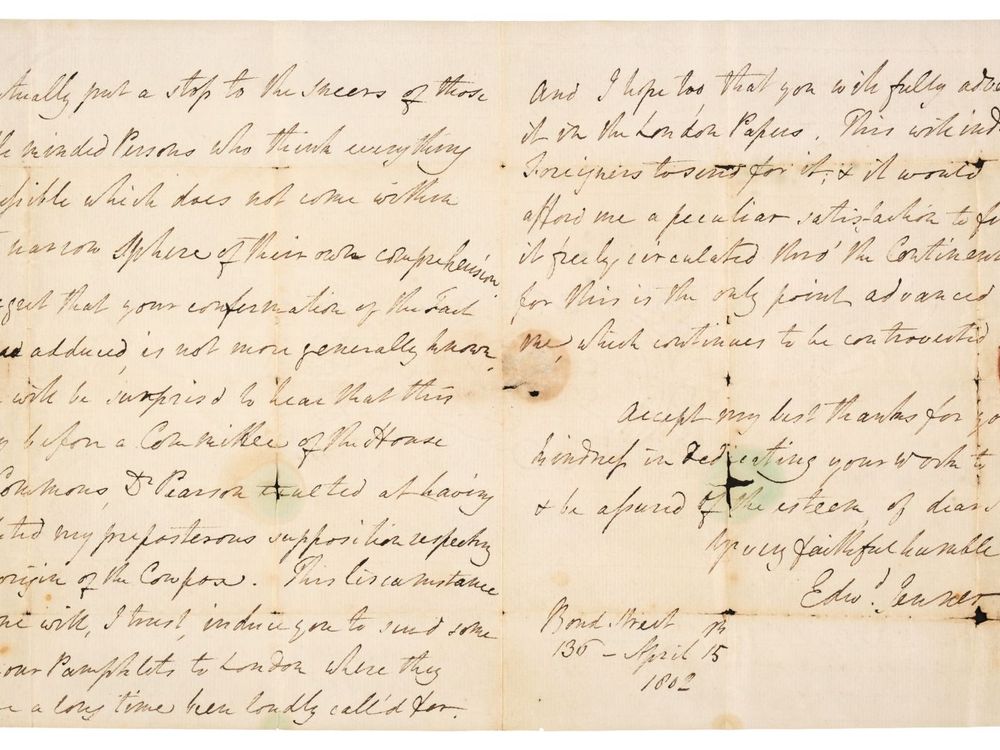 tually put a stop to the sneers of those
le minded Persons who think everything
possible which does not come within
narrow sphere of their own comprehension
gret that your confirmation of the Fact
adduced, is not more generally known,
will be surpris'd to hear that this
before a Committee of the House
Commons, Dr Pearson exulted at having
uted my preposterous supposition respecting
origin of the Cowpox. This Circumstance
ne will, I trust, induce you to send some
our Pamphlets to London where they
e a long time been loudly call'd for.
And I hope too, that you will fully adve
it in the London Papers. This will ind
Foreigners to send for it, & it would
afford me a peculiar satisfaction to fi
it freely circulated thro' the Continent
for this is the only point advanced
me, which continues to be controverted
Accept my best thanks for yo
kindness in dedicating your work to
& be assured of the esteem, of dear S
Yr very faithful humble
Edwd. Jenner
Bond Street
136 - April 15th
1802